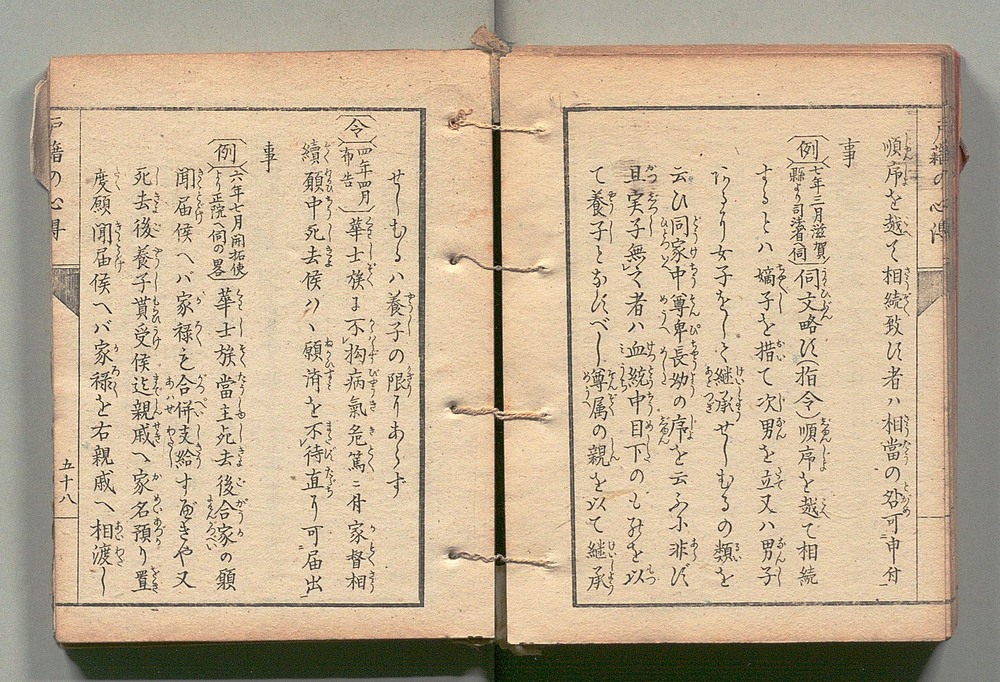 順序を越て相続致ス者ハ相當の咎可申付
事
例 七年三月滋賀縣より司法省伺 伺文略ス(指令)順序を越て相続
するとハ嫡子を措て次男を立又ハ男子
ありて女子をして継承せしむるの類を
云ひ同家中尊卑長幼の序を云ふに非ず
且実子無く者ハ血統中目下のものを以
て養子となすべし尊属の親を以て継承
せしむるハ養子の限りあらず
令 四年四月布告 華士族に不拘病氣危篤ニ付家督相
續願中死去候ハヽ願済を不待直り可届出
事
例 六年七月開拓使より正院へ伺の畧 華士族當主死去後合家の願
聞届候ヘバ家禄も合併支給すべきや又
死去後養子貰受候迄親戚へ家名預り置
度願聞届候ヘバ家禄を右親戚へ相渡し
戸籍の心得
五十八